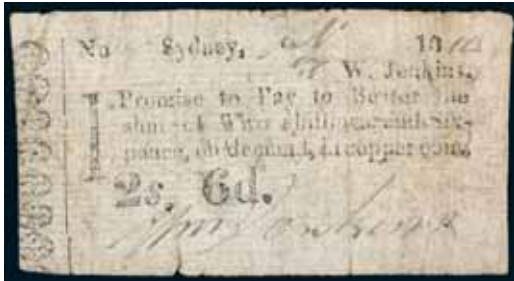 No Sydney, 18
W. Jenkins.
I Promise to Pay to Bearer the
sum of Two shillings and six-
pence, on demand, in copper coin.
2s. 6d.
Wm Jenkins